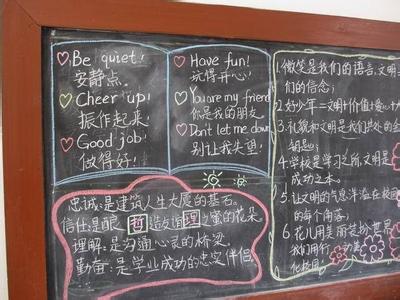 Be quiet!
安静点!
Cheer up!
振作起来!
Good job!
做得好!
Have fun!
玩得开心!
You are my friend
你是我的朋友
Don't let me down
别让我失望!
忠诚:是建筑人生大厦的基石。
信任:是酿造友谊之蜜的花朵。
理解:是沟通心灵的桥梁。
勤奋:是学业成功的忠实伴侣。
哲理
1.微笑是我们的语言,文明
们的信念;
2.好少年=文明+价值
3.礼貌和文明是我们共处的金
钥匙;
4.学校是学习之所,文明是
成功之本。
5.让文明的气息洋溢在校园
的每个角落;
6.花儿用美丽装扮世界
我们用行
化校园